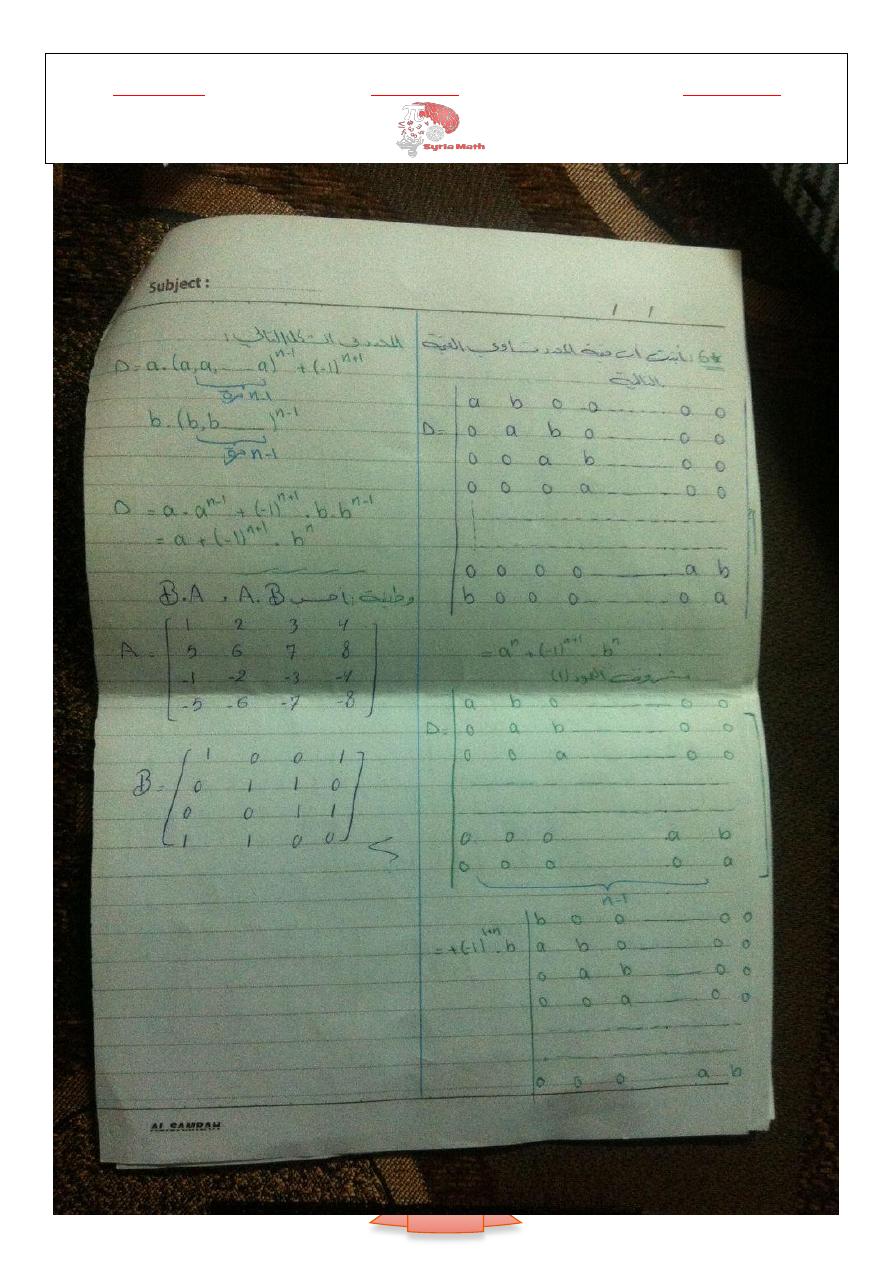 Syria Math
Subject :
/ /
6* . أثبت أن قيمة المحدد تساوي القيمة
التالية
a b 0 0 ------ 0 0
D= 0 a b 0 ------ 0 0
0 0 a b ------ 0 0
0 0 0 a ------ 0 0
0 0 0 0 ------ a b
b 0 0 0 ------ 0 a
= aⁿ + (-1)ⁿ⁺¹ . bⁿ
العمود (1)
a b 0 ------ 0 0
D= 0 a b ------ 0 0
0 0 a ------ 0 0
0 0 0 a b
0 0 0 0 a
n-1
b 0 0 ------ 0 0
= +(-1)¹⁺ⁿ . b a b 0 ------ 0 0
0 a b ------ 0 0
0 0 a ------ 0 0
0 0 0 a b
التالي :
D= a. (a, a, ------ a)ⁿ⁻¹ + (-1)ⁿ⁺¹
n-1
b. (b, b ------ )ⁿ⁻¹
n-1
D = a . aⁿ⁻¹ + (-1)ⁿ⁺¹ . b . bⁿ⁻¹
= a + (-1)ⁿ⁺¹ . bⁿ
وظيفة : احسب A.B , B.A
1 2 3 4
A = 5 6 7 8
-1 -2 -3 -4
-5 -6 -7 -8
1 0 0 1
B = 0 1 1 0
0 0 1 1
1 1 0 0
AL SAMRAH